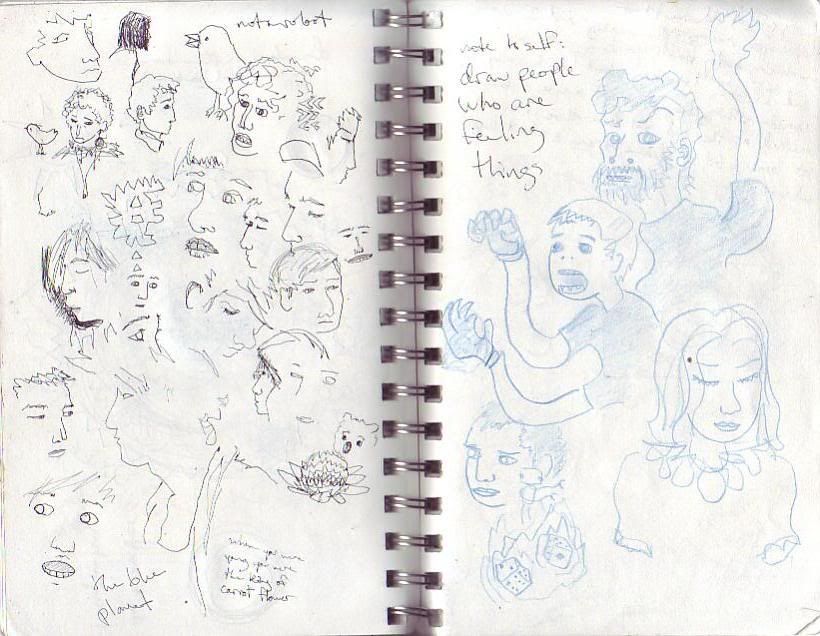 notarobot
the blue
planet
when you were
young you were
the king of
carrot flower
note to self:
draw people
who are
feeling
things